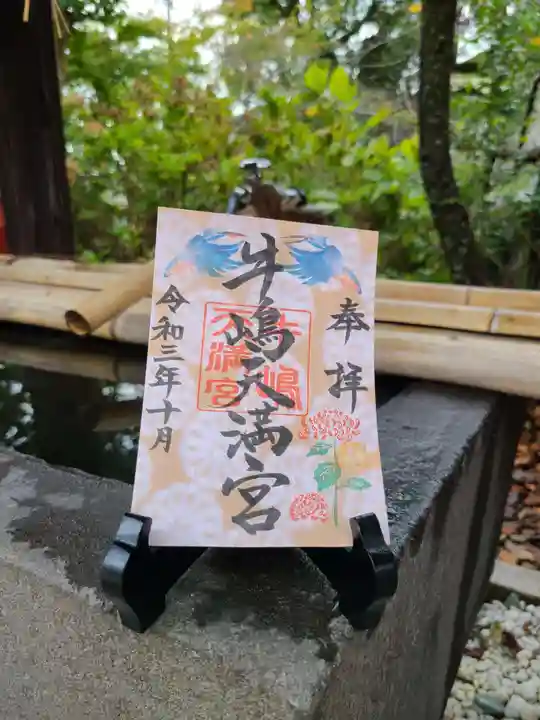 奉拝
牛嶋天満宮
牛嶋
天満宮
令和三年十月